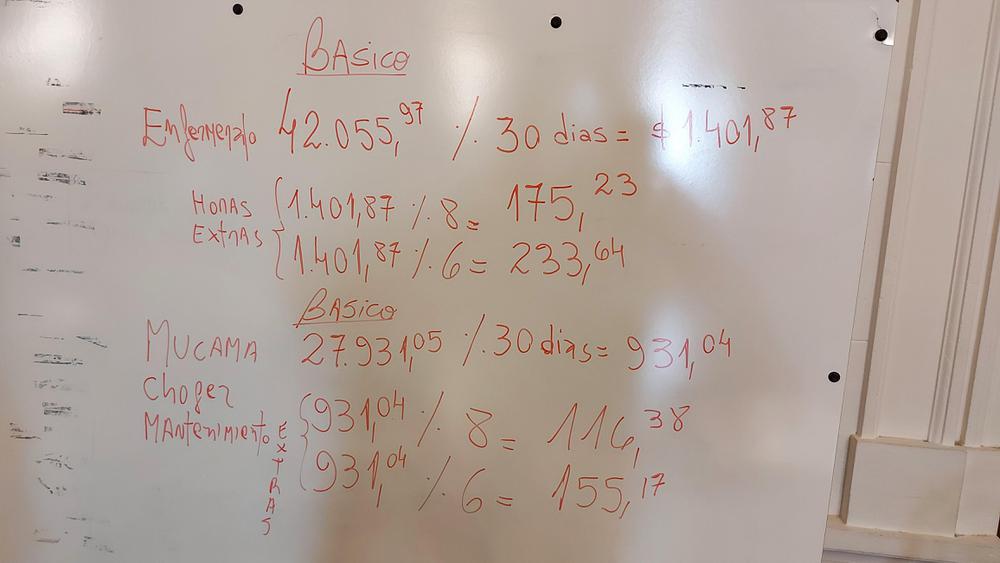 BASICO
Enfermero 42.055,97 ٪ 30 dias = $ 1.401,87
HORAS EXTRAS
1.401,87 ٪ 8 = 175,23
1.401,87 ٪ 6 = 233,64
BASICO
MUCAMA 27.931,05 ٪ 30 dias = 931,04
Chofer
MANtenimiento
EXTRAS
931,04 ٪ 8 = 116,38
931,04 ٪ 6 = 155,17